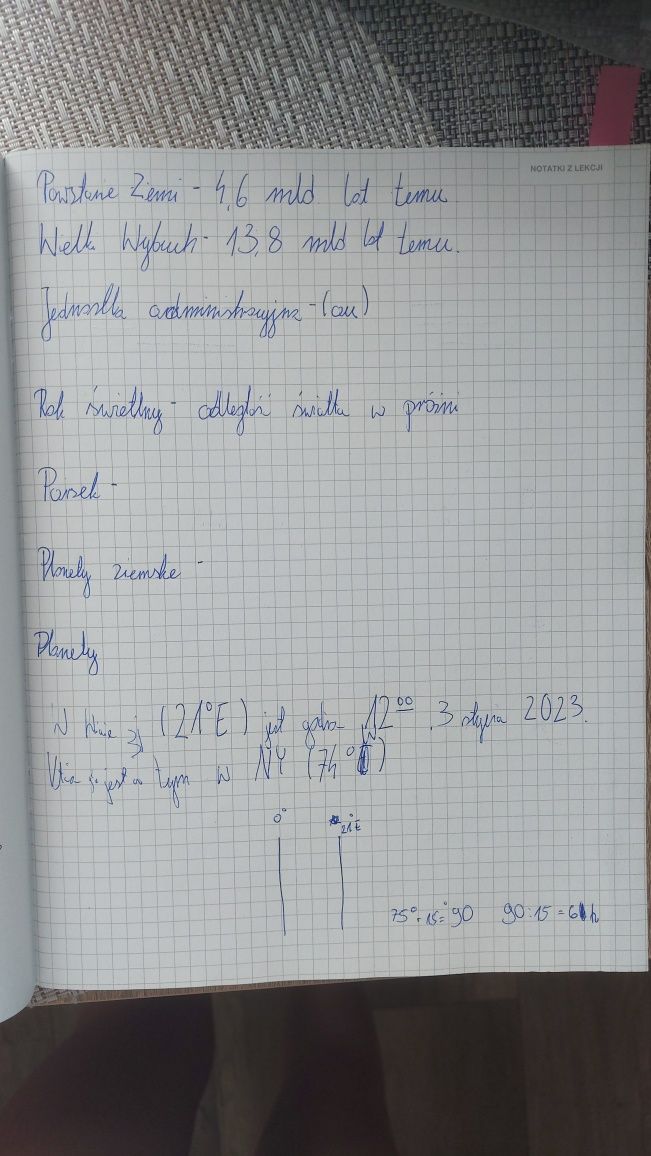 NOTATKI Z LEKCJI
Powstanie Ziemi - 4,6 mld lat temu
Wielk Wybuch - 13,8 mld lat temu.
Jednostka administracyjna - (au)
Rok świetlny - odległość światła w próżni
Parsek -
Planety ziemskie -
Planety
W (21°E) jest godzina 12⁰⁰ 3 stycznia 2023.
jest w tym w NY (74°)
0° 21°E
75° + 15° = 90 90:15 = 6h